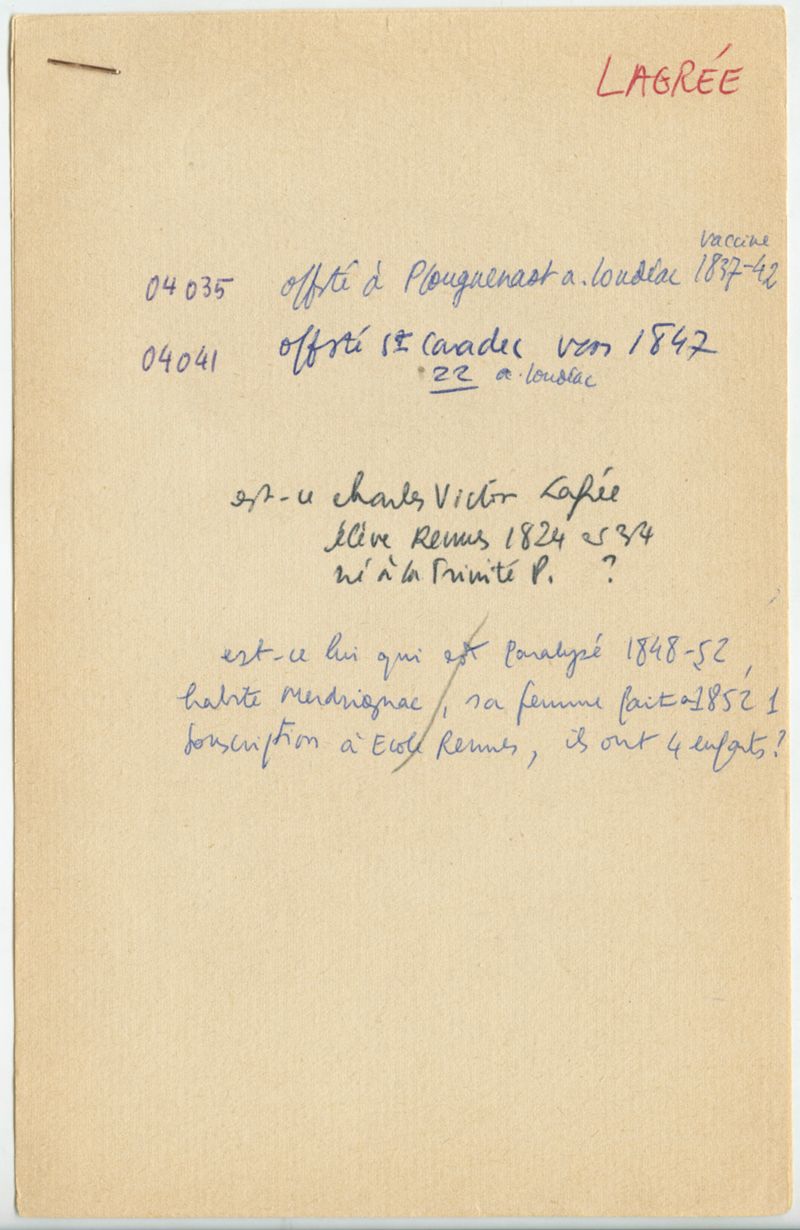 LAGRÉE
vaccine
04035 offsté à Plouguenast a. Loudéac 1837-42
04041 offsté St Caradec vers 1847
22 a. Loudéac
est-ce Charles Victor Lagrée
élève Rennes 1824 et 34
né à la Trinité P. ?
est-ce lui qui est paralysé 1848-52,
habite Merdrignac, sa femme fait 1852 1
souscription à Ecole Rennes, ils ont 4 enfants?